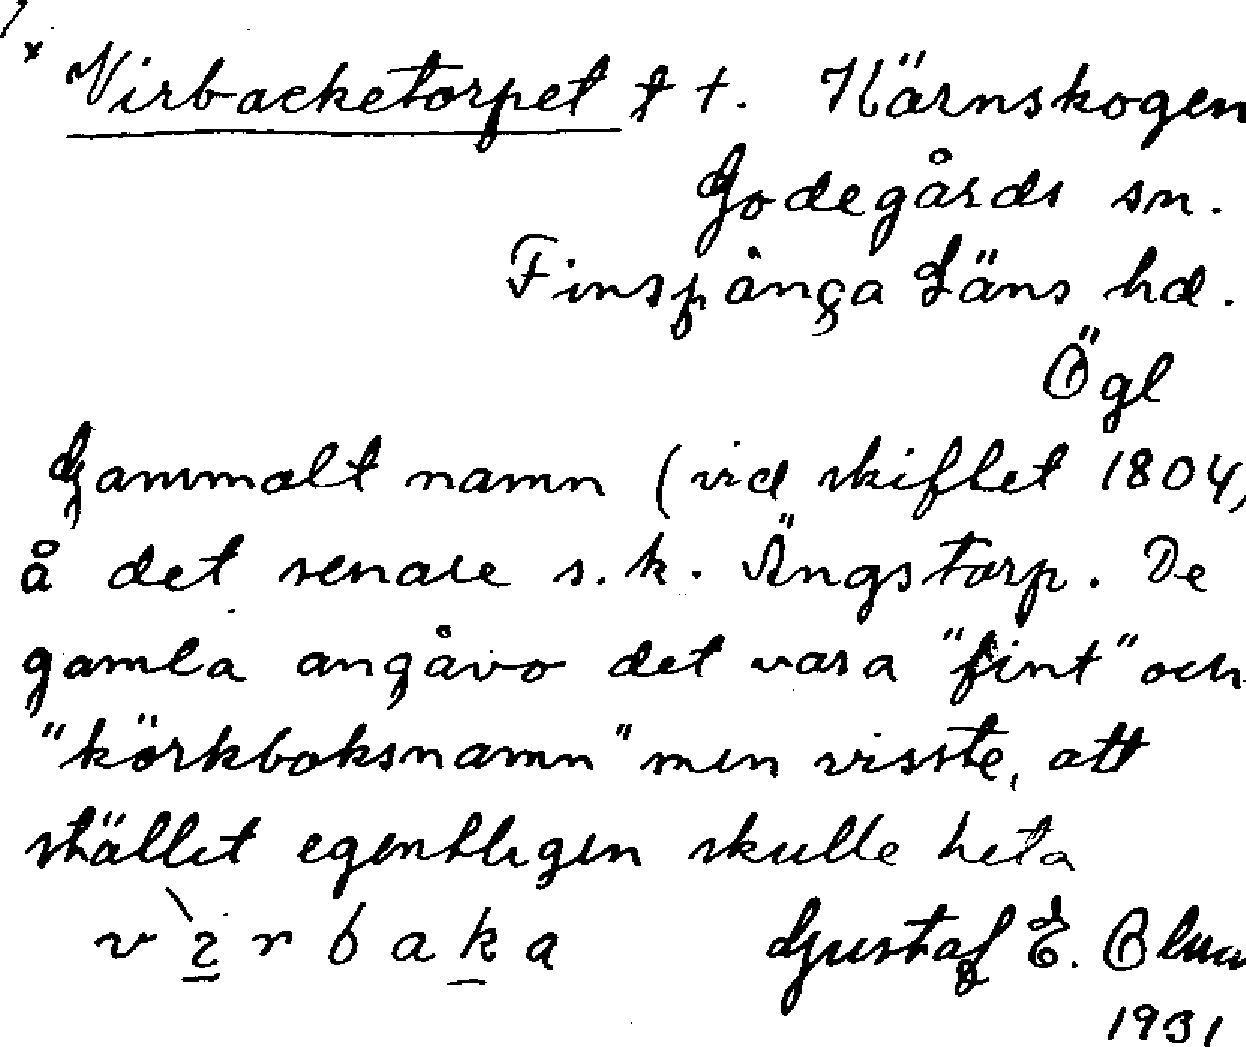 x Virbacketorpet † t. Kärnskogen
Godegårds sn.
Finspånga Läns hd.
Ögl
Gammalt namn (vid skiftet 1804)
å det senare s.k. Ängstorp. De
gamla angåvo det vara "fint" och
"körkboksnamn" men visste, att
stället egentligen skulle heta
v ì r b a k a Gustaf E.
1931